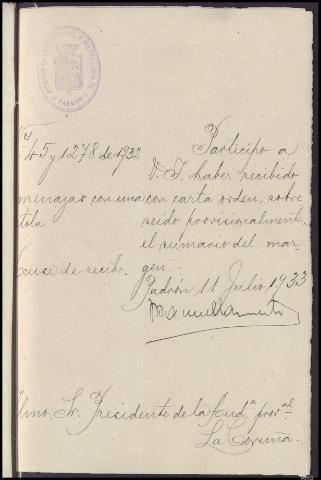 PADRÓN
45 y 1278 de 1932
menazas con una
tola
Acuse de recibo.
Participo a
V. I. haber recibido
con carta orden, sobre
seido provisionalmente,
el sumario del mar-
gen.
Padrón 11 Julio 1933
Ilmo. Sr. Presidente de la Aud.ª prov.al
La Coruña.